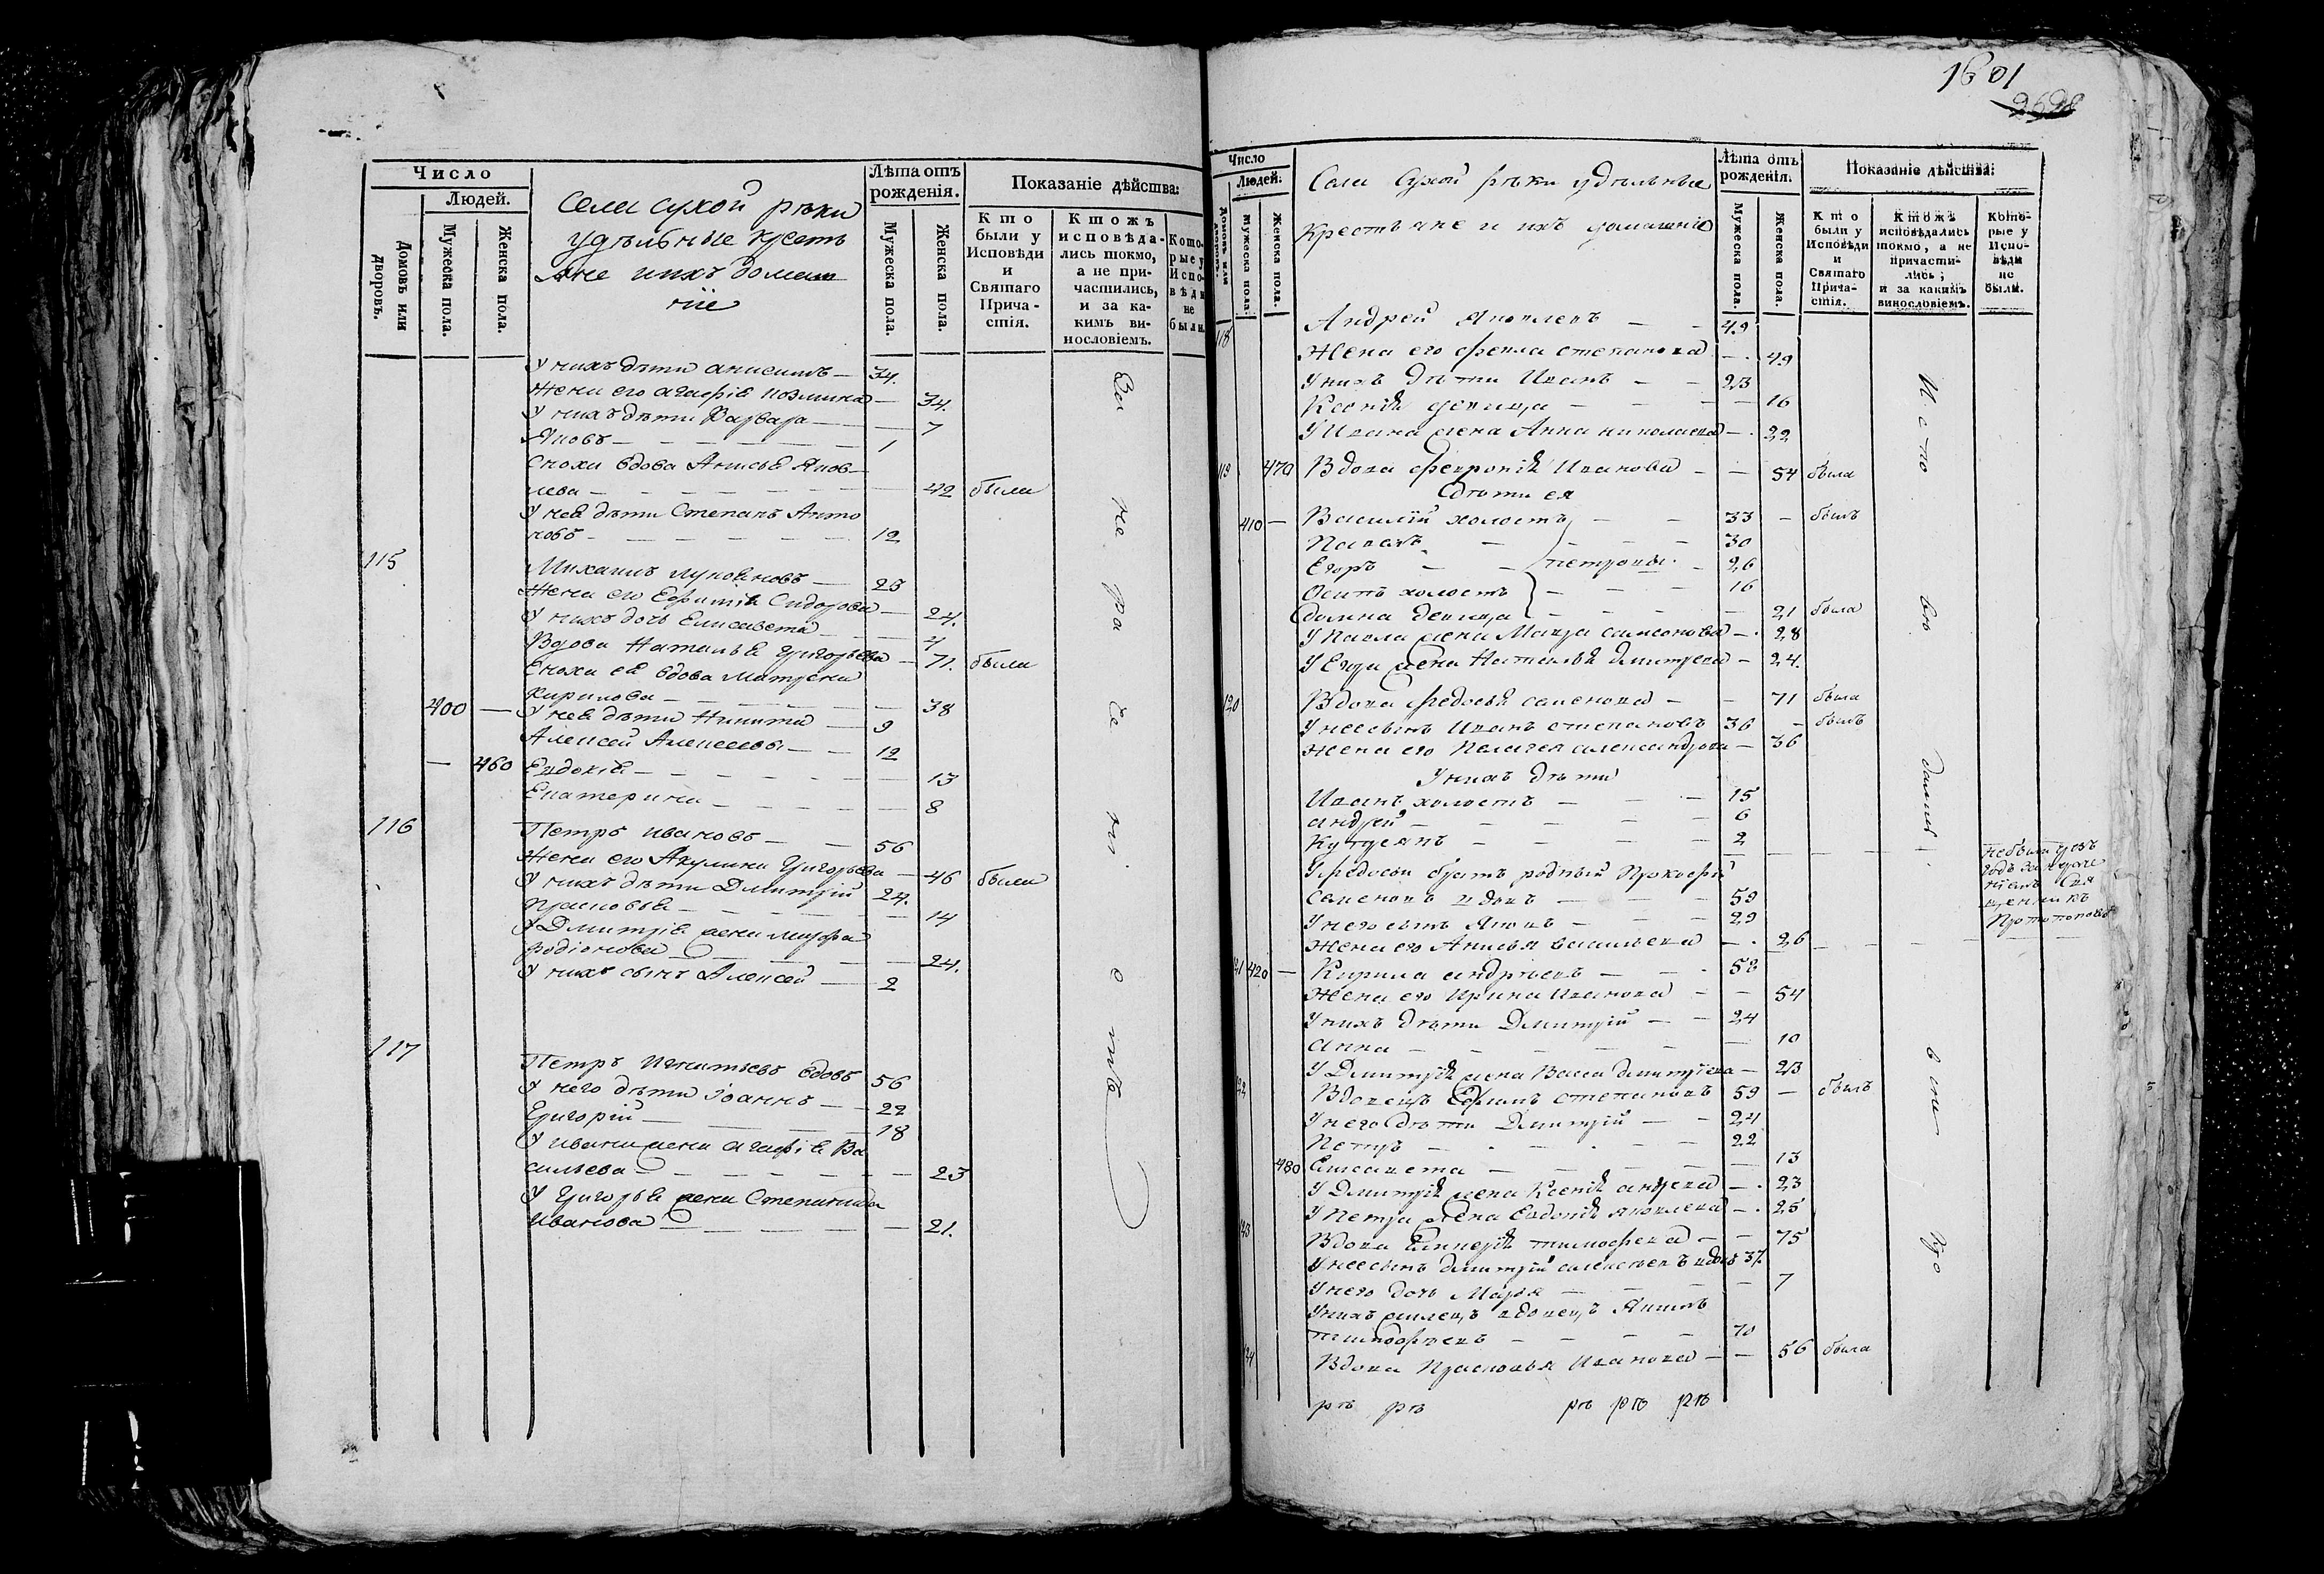 Число
Людей.
Домовъ или дворовъ.
Мужеска пола.
Женска пола.
Села Сухой рѣки
удѣльные кресть
яне и ихъ домаш
ніе
Лѣта отъ рожденія.
Мужеска пола.
Женска пола.
Показаніе дѣйства:
Кто были у Исповѣди и Святаго Прича-стія.
Ктожъ исповѣда-лись токмо, а не при-частились, и за ка-кимъ ви-нословіемъ.
Кото-рые у Испо-вѣди не были.
У нихъ дѣти Анисимъ — 34.
Жена его Агафія Козмина — 34.
У нихъ дѣти Варвара — 7
Яковъ — 1
Сноха вдова Анисья Яков-
лева — 42 были
У неѣ дѣти Степанъ Анто
новъ — 12
115 Михаилъ Лукояновъ — 25
Жена его Ефимія Сидорова — 24.
У нихъ дочь Елисавета — 4
Вдова Наталья Григорьева — 71. были
Сноха еѣ вдова Матрена
Кирилова — 38
400 — У неѣ дѣти Никита — 9
Алексей Алексеевы — 12
— 460 Евдокія — 13
Екатерина — 8
116 Петръ Ивановъ — 56
Жена его Акулина Григорьева — 46 были
У нихъ дѣти Дмитрій 24.
Прасковья — 14
У Дмитрія жена Марфа
Родіонова — 24.
У нихъ сынъ Алексей — 2
117 Петръ Игнатьевъ вдовъ 56
У него дѣти Іоаннъ — 22
Григорій — 18
У Ивана жена Агафія Ва
сильева — 23
У Григорья жена Степанида
Иванова — 21.
1601
2628
Число
Людей.
Домовъ или дворовъ.
Мужеска пола.
Женска пола.
Села Сухой рѣки удѣльные
Крестьяне и ихъ домашніе
Лѣта отъ рожденія.
Мужеска пола.
Женска пола.
Показаніе дѣйства:
Кто были у Исповѣди и Святаго Прича-стія.
Ктожъ исповѣдались токмо, а не причасти-лись; и за какимъ винословіемъ.
Кото-рые у Испо-вѣди не были.
118 Андрей Яковлевъ — 49
Жена его Фекла Степанова — 49
У нихъ дѣти Иванъ — 23
Ксенія девица — 16
У Ивана жена Анна Николаева — 22
119 470 Вдова Феvронія Иванова — 54 была
дѣти ея
410 — Василій холостъ — 33 — былъ
Павелъ — 30
Егоръ — петровы — 26
Осипъ холостъ — 16
Домна девица — 21 была
У Павла жена Марфа Самсонова — 28
У Егора жена Наталья Дмитрева — 24.
120 Вдова Федосья Семенова — 71 была
У нее сынъ Иванъ Степановъ 36 — былъ
Жена его Пелагея Александрова — 36
У нихъ дѣти
Иванъ холостъ — 15
Андрей — 6
Купреянъ — 2
У Федосьи братъ родный Прокофій
Семеновъ вдовъ — 59
У него сынъ Яковъ — 29
Жена его Анисья Васильева — 26
Не были чрезъ
годъ
Протопоповъ
121 420 — Кирила Андреевъ — 58
Жена его Ирина Иванова — 54
У нихъ дѣти Дмитрій — 24
Анна — 10
У Дмитрія жена Васса Дмитріева — 23
122 Вдовецъ Ефимъ Степановъ 59 — былъ
У него дѣти Дмитрій — 24
Петръ — 22
480 Елисавета — 13
У Дмитрія жена Ксенія Андреева — 23
У Петра жена Евдокія Яковлева — 25
123 Вдова Гликерія Тимофеева — 75
У нее сынъ Дмитрій Алексеевъ вдовъ 37.
У него дочь Марья — 7
У нихъ жилецъ вдовецъ Якимъ
Тимофеевъ — 70
124 Вдова Прасковья Иванова — 56 была
рѣ рѣ рѣ рѣ рѣ